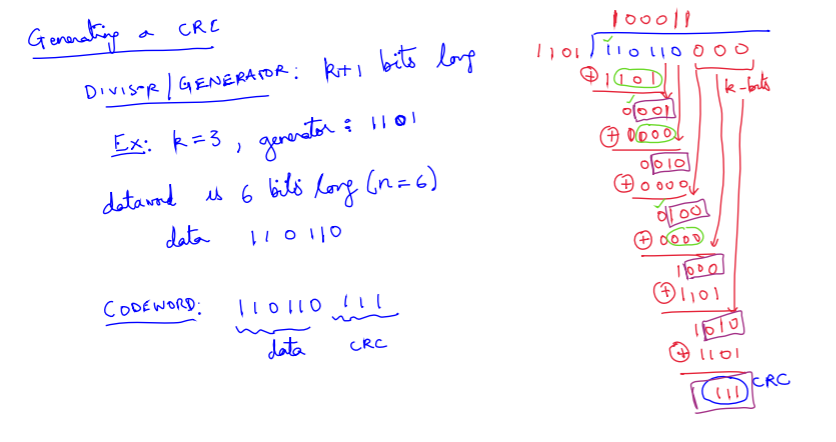 Generating a CRC
DIVISOR/GENERATOR: k+1 bits long
Ex: k=3, generator: 1101
dataword is 6 bits long (n=6)
data 110110
CODEWORD: 110110 111
data CRC
100011
1101 110110000
⊕ 1101
k-bits
0001
⊕ 0000
0010
⊕ 0000
0100
⊕ 0000
1000
⊕ 1101
1010
⊕ 1101
111 CRC